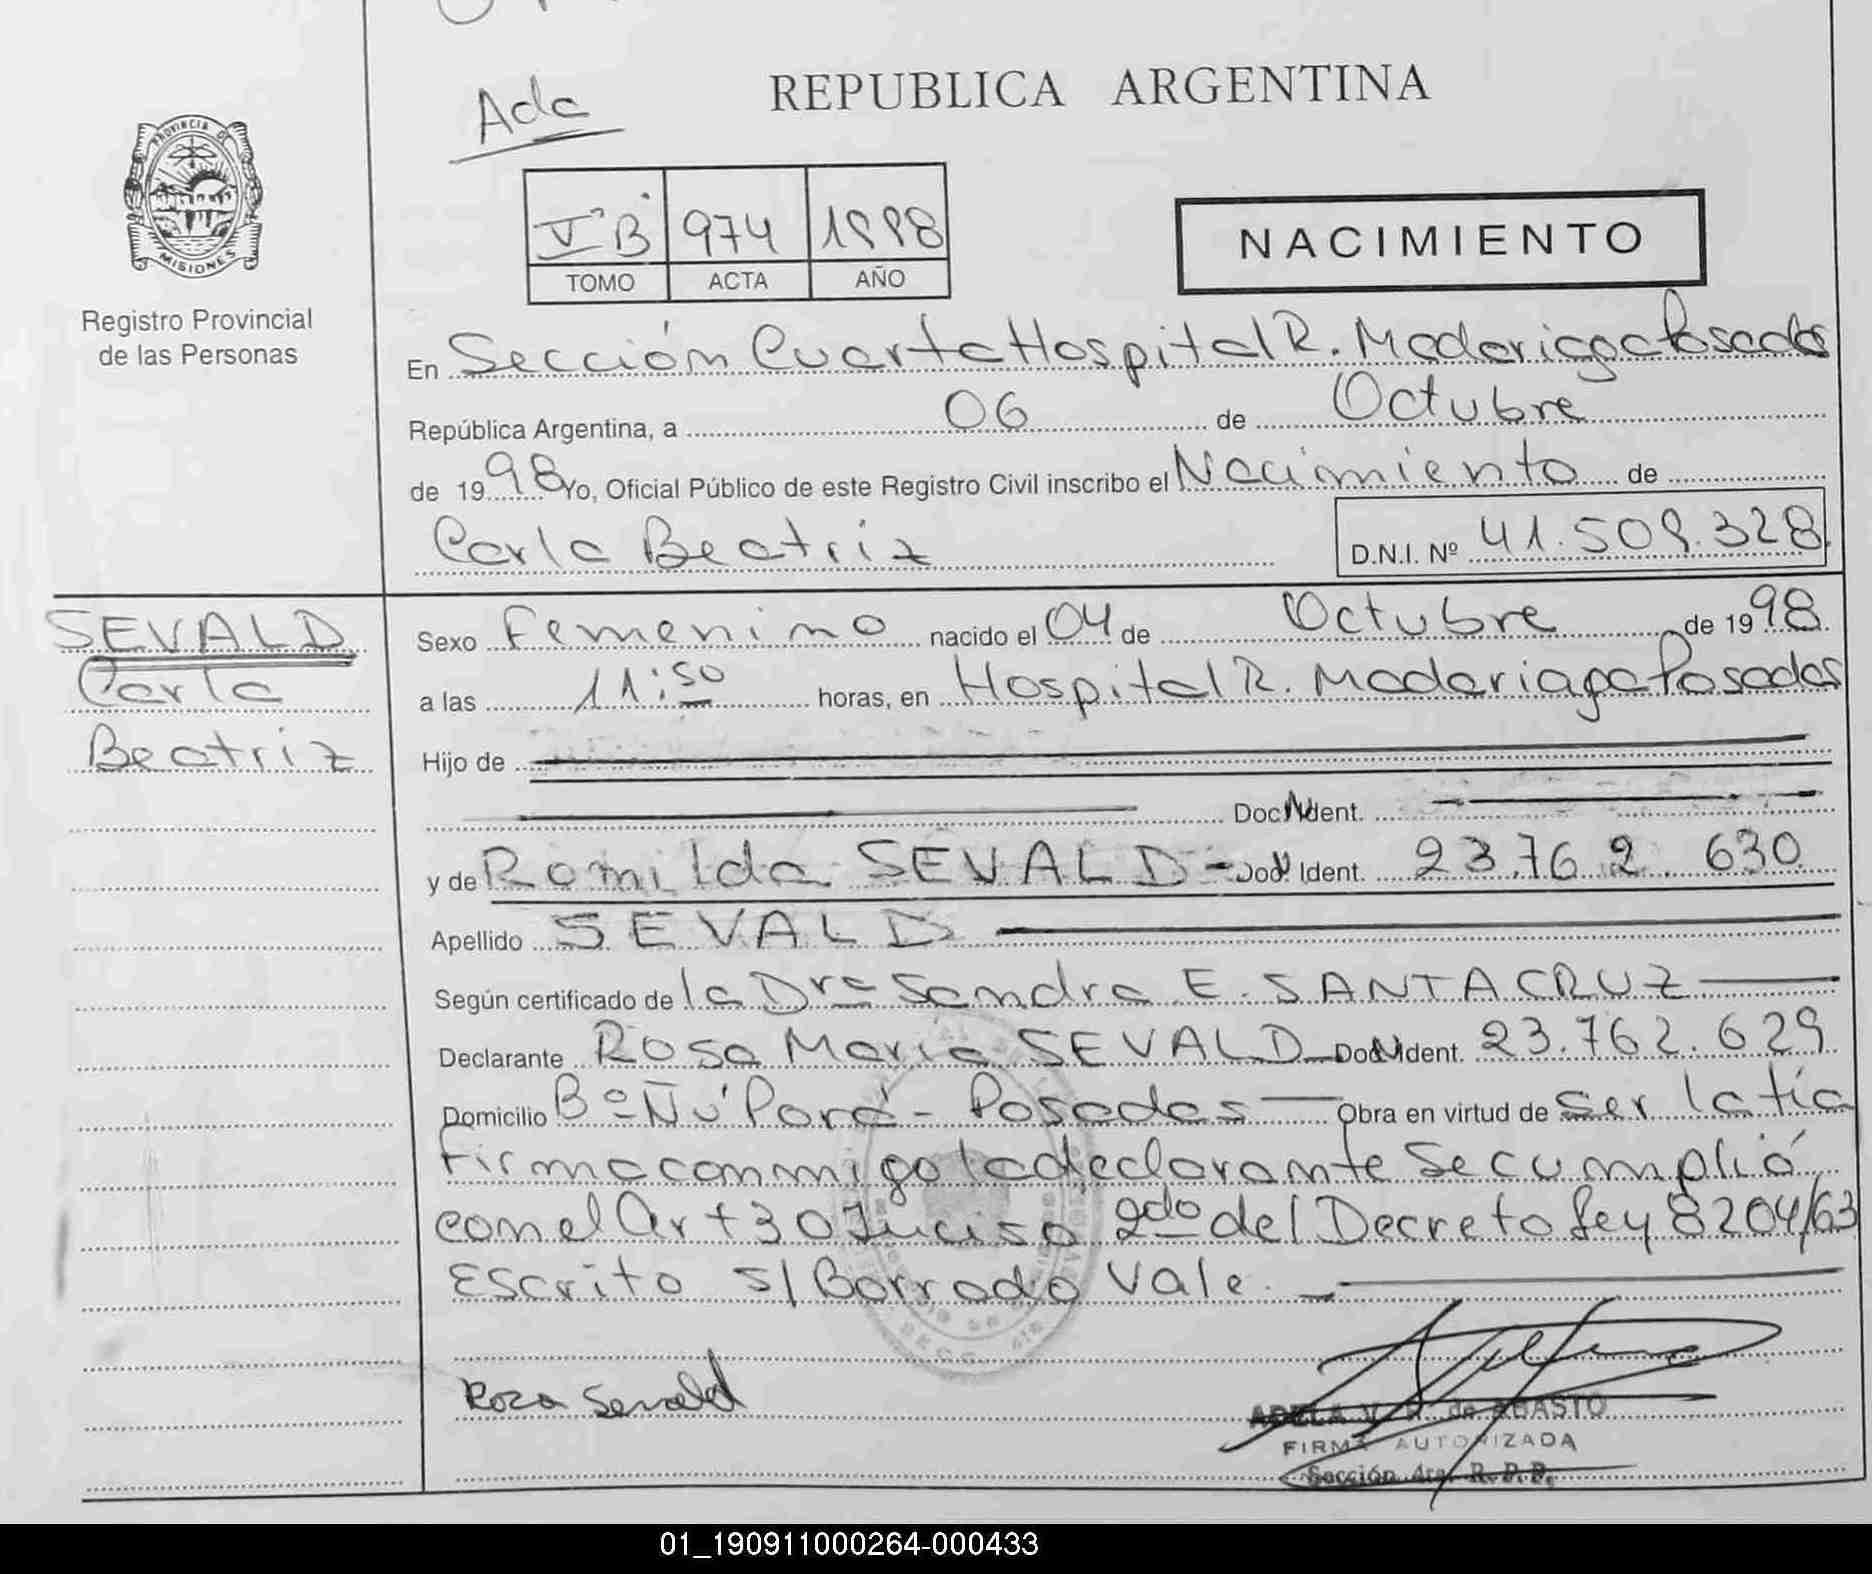 Ada
REPUBLICA ARGENTINA
PROVINCIA DE
MISIONES
Registro Provincial
de las Personas
Vº B 974 1998
TOMO ACTA AÑO
NACIMIENTO
En Sección Cuarta Hospital R. Madariaga Posadas
República Argentina, a 06 de Octubre
de 1998 Yo, Oficial Público de este Registro Civil inscribo el Nacimiento de
Carla Beatriz D.N.I. Nº 41.509.328
SEVALD
Carla
Beatriz
Sexo Femenino nacido el 04 de Octubre de 1998
a las 11:50 horas, en Hospital R. Madariaga Posadas
Hijo de
Doc. Ident.
y de Romilda SEVALD - Doc. Ident. 23.762.630
Apellido SEVALD
Según certificado de la Dra Sandra E. SANTACRUZ
Declarante Rosa María SEVALD Doc. Ident. 23.762.629
Domicilio Bº Ñu Porá - Posadas Obra en virtud de ser la tía
Firma conmigo la declarante Se cumplió
con el Art 30 Inciso 2do del Decreto Ley 8204/63
Escrito s/ Borrado Vale.
Roza Sevald
ADELA V. de ABASTO
FIRMA AUTORIZADA
Sección 4ta. R. P. P.
01_190911000264-000433